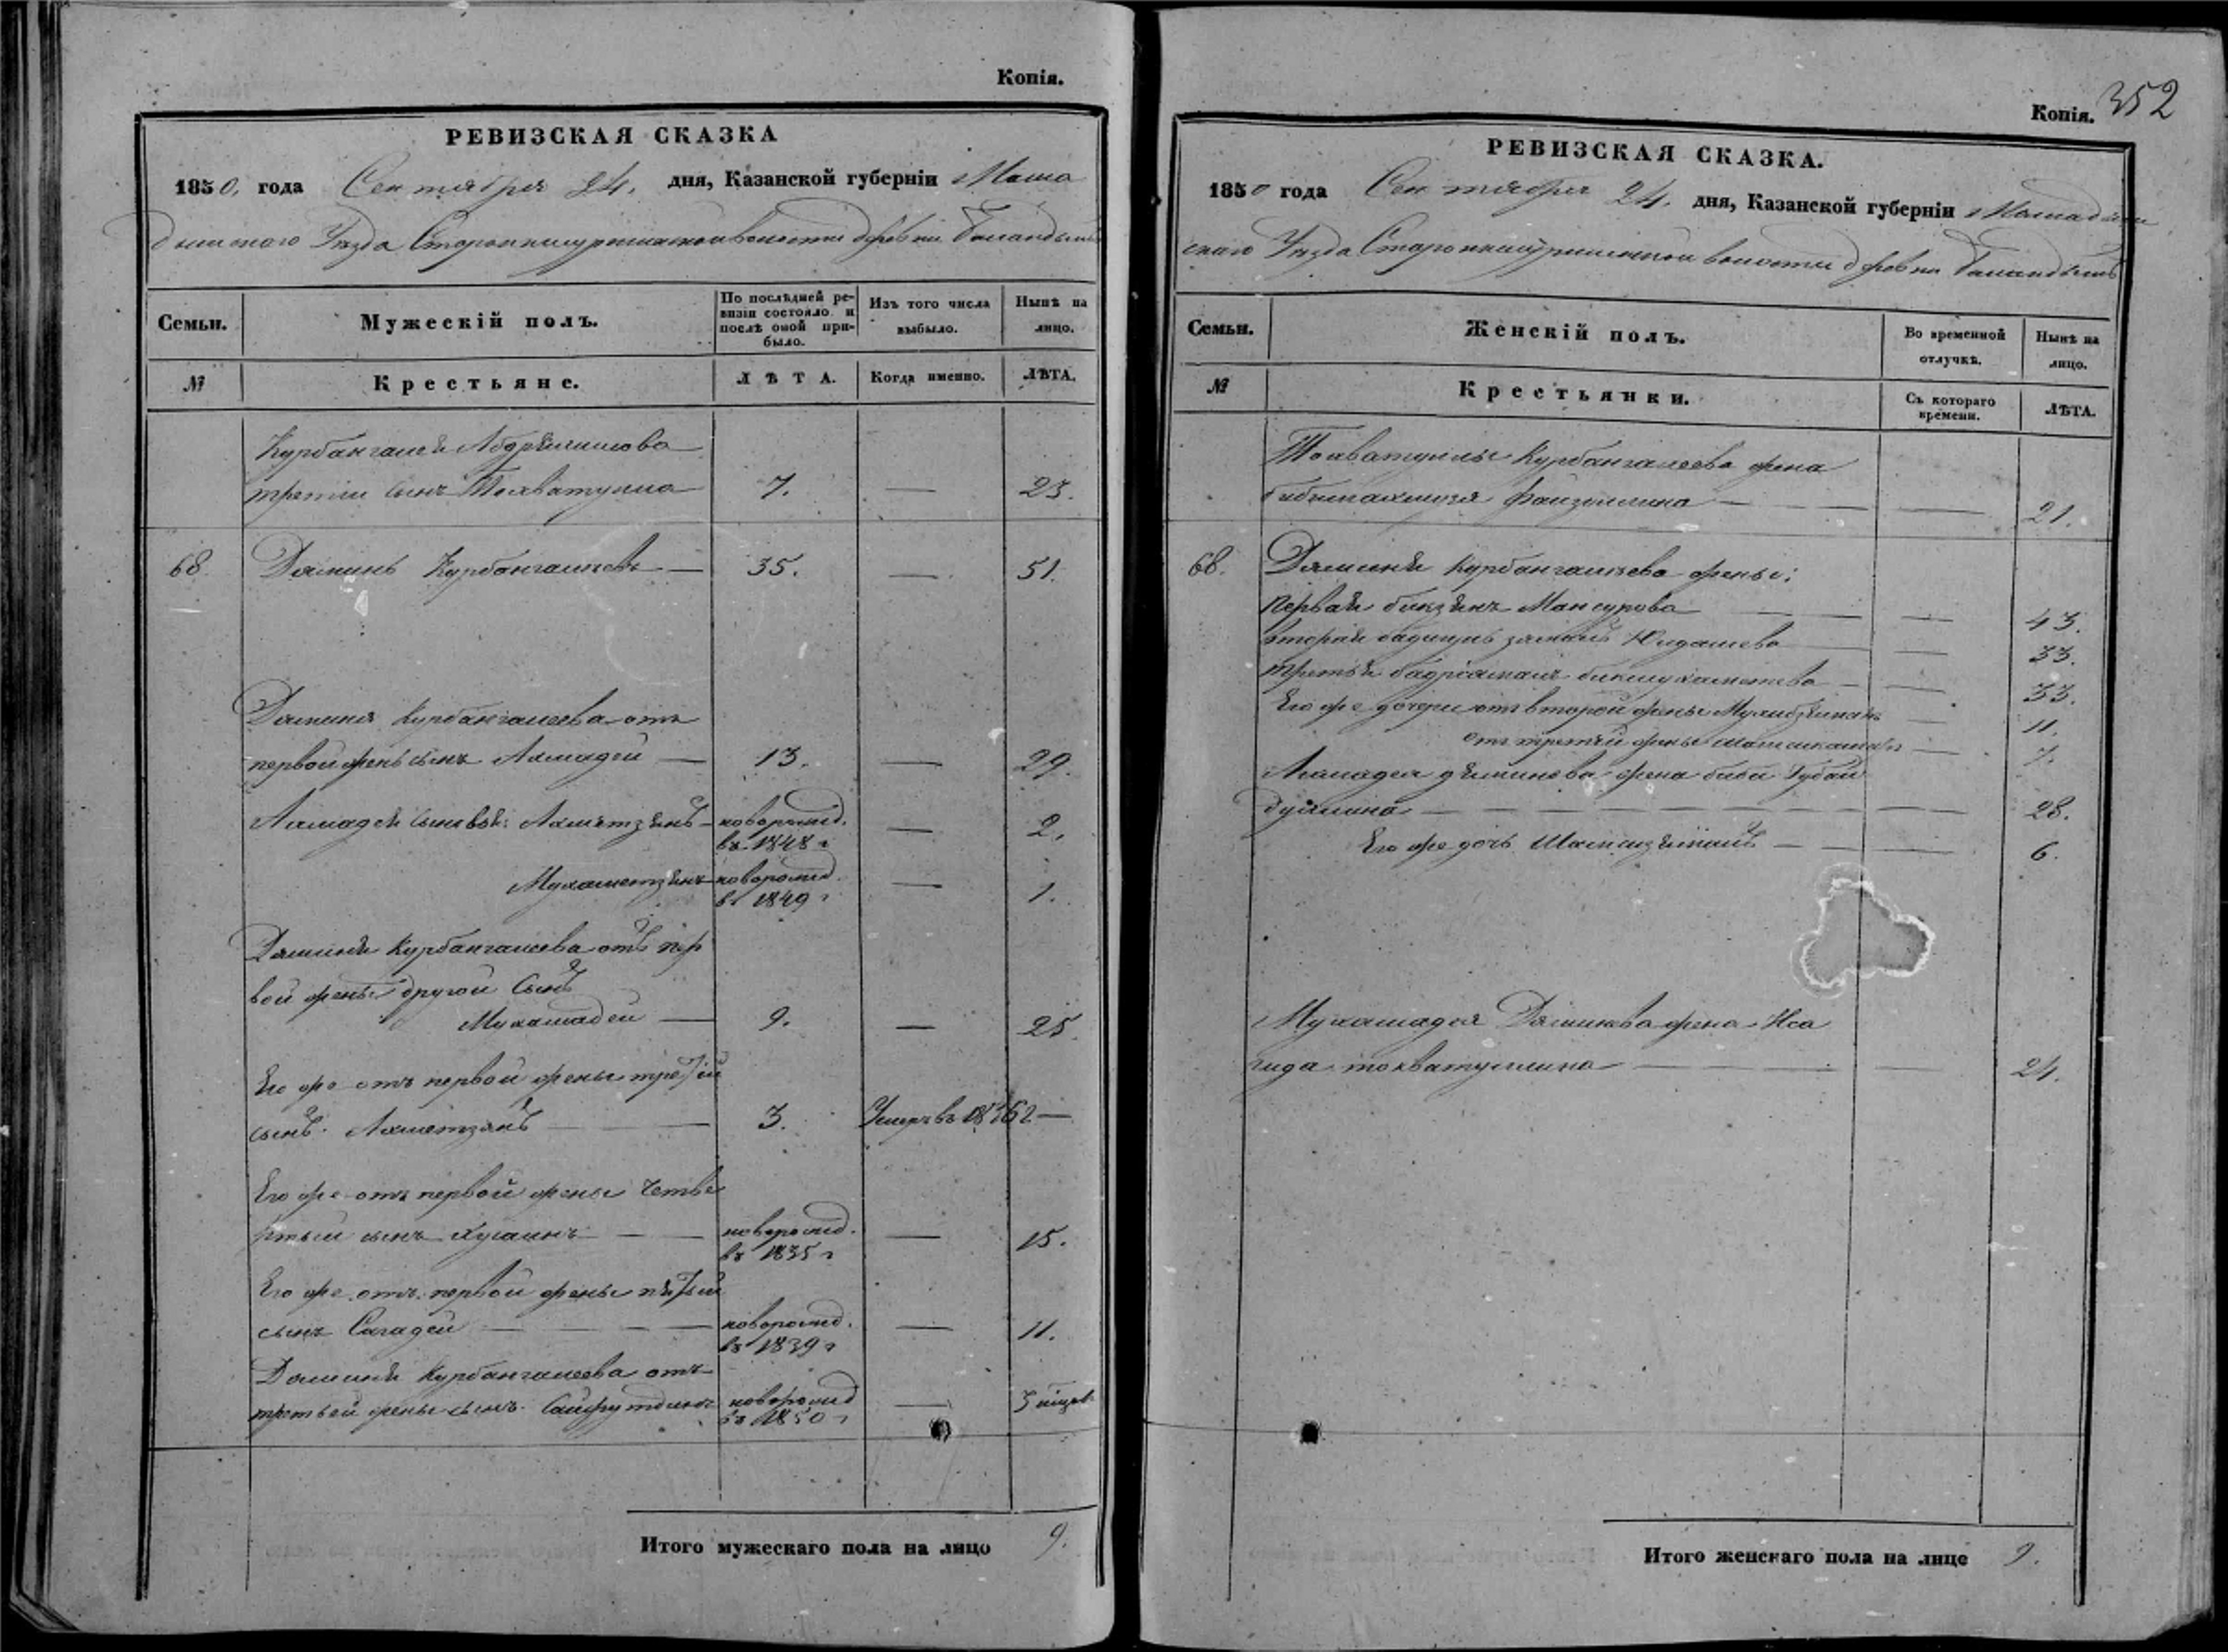 Копія.
РЕВИЗСКАЯ СКАЗКА
1850, года Сентября 24. дня, Казанской губерніи Мама
дышскаго Уѣзда волости деревни
Семьи.
Мужескій полъ.
По послѣдней ре-
визіи состояло и
послѣ оной при-
было.
Изъ того числа
выбыло.
Нынѣ на
лицо.
№
Крестьяне.
ЛѢТА.
Когда именно.
ЛѢТА.
Курбангалей
третій сынъ Тохватулла 7. — 23.
68. Дяминъ Курбангалеевъ — 35. — 51.
Дяминя Курбангалеева отъ
первой жены сынъ Ахмадей — 13. — 29.
Ахмадея сыновья: Ахметзянъ — новорожд. — 2.
въ 1848 г
Мухаметзянъ новорожд. — 1.
въ 1849 г
Дяминя Курбангалеева отъ пер
вой жены другой сынъ
Мухамадей — 9. — 25.
Его же отъ первой жены третій
сынъ Ахметзянъ — 3. Умеръ въ 1836 г —
Его же отъ первой жены четве
ртый сынъ Хусаинъ — новорожд. — 15.
въ 1835 г
Его же отъ первой жены пятый
сынъ Сагадей — новорожд. — 11.
въ 1839 г
Дяминя Курбангалеева отъ
третьей жены сынъ Сайфутдинъ новорожд —
въ 1850 г
Итого мужескаго пола на лицо 9.
Копія. 352
РЕВИЗСКАЯ СКАЗКА.
1850 года Сентября 24. дня, Казанской губерніи Мамадыш
скаго Уѣзда волости деревни
Семьи.
Женскій полъ.
Во временной
отлучкѣ.
Нынѣ на
лицо.
№
Крестьянки.
Съ котораго
времени.
ЛѢТА.
Тохватуллы Курбангалеева жена
Файзуллина — 21.
68. Дяминя Курбангалеева жены:
первая Мансурова — 43.
вторая Юлдашева — 33.
третья Бикмухаметева — 33.
Его же дочери отъ второй жены — 11.
отъ третьей жены — 7.
Ахмадея Дяминова жена Биби Губай
дуллина — 28.
Его же дочь — 6.
Мухамадея Дяминова жена
Тохватуллина — 24.
Итого женскаго пола на лице 9.